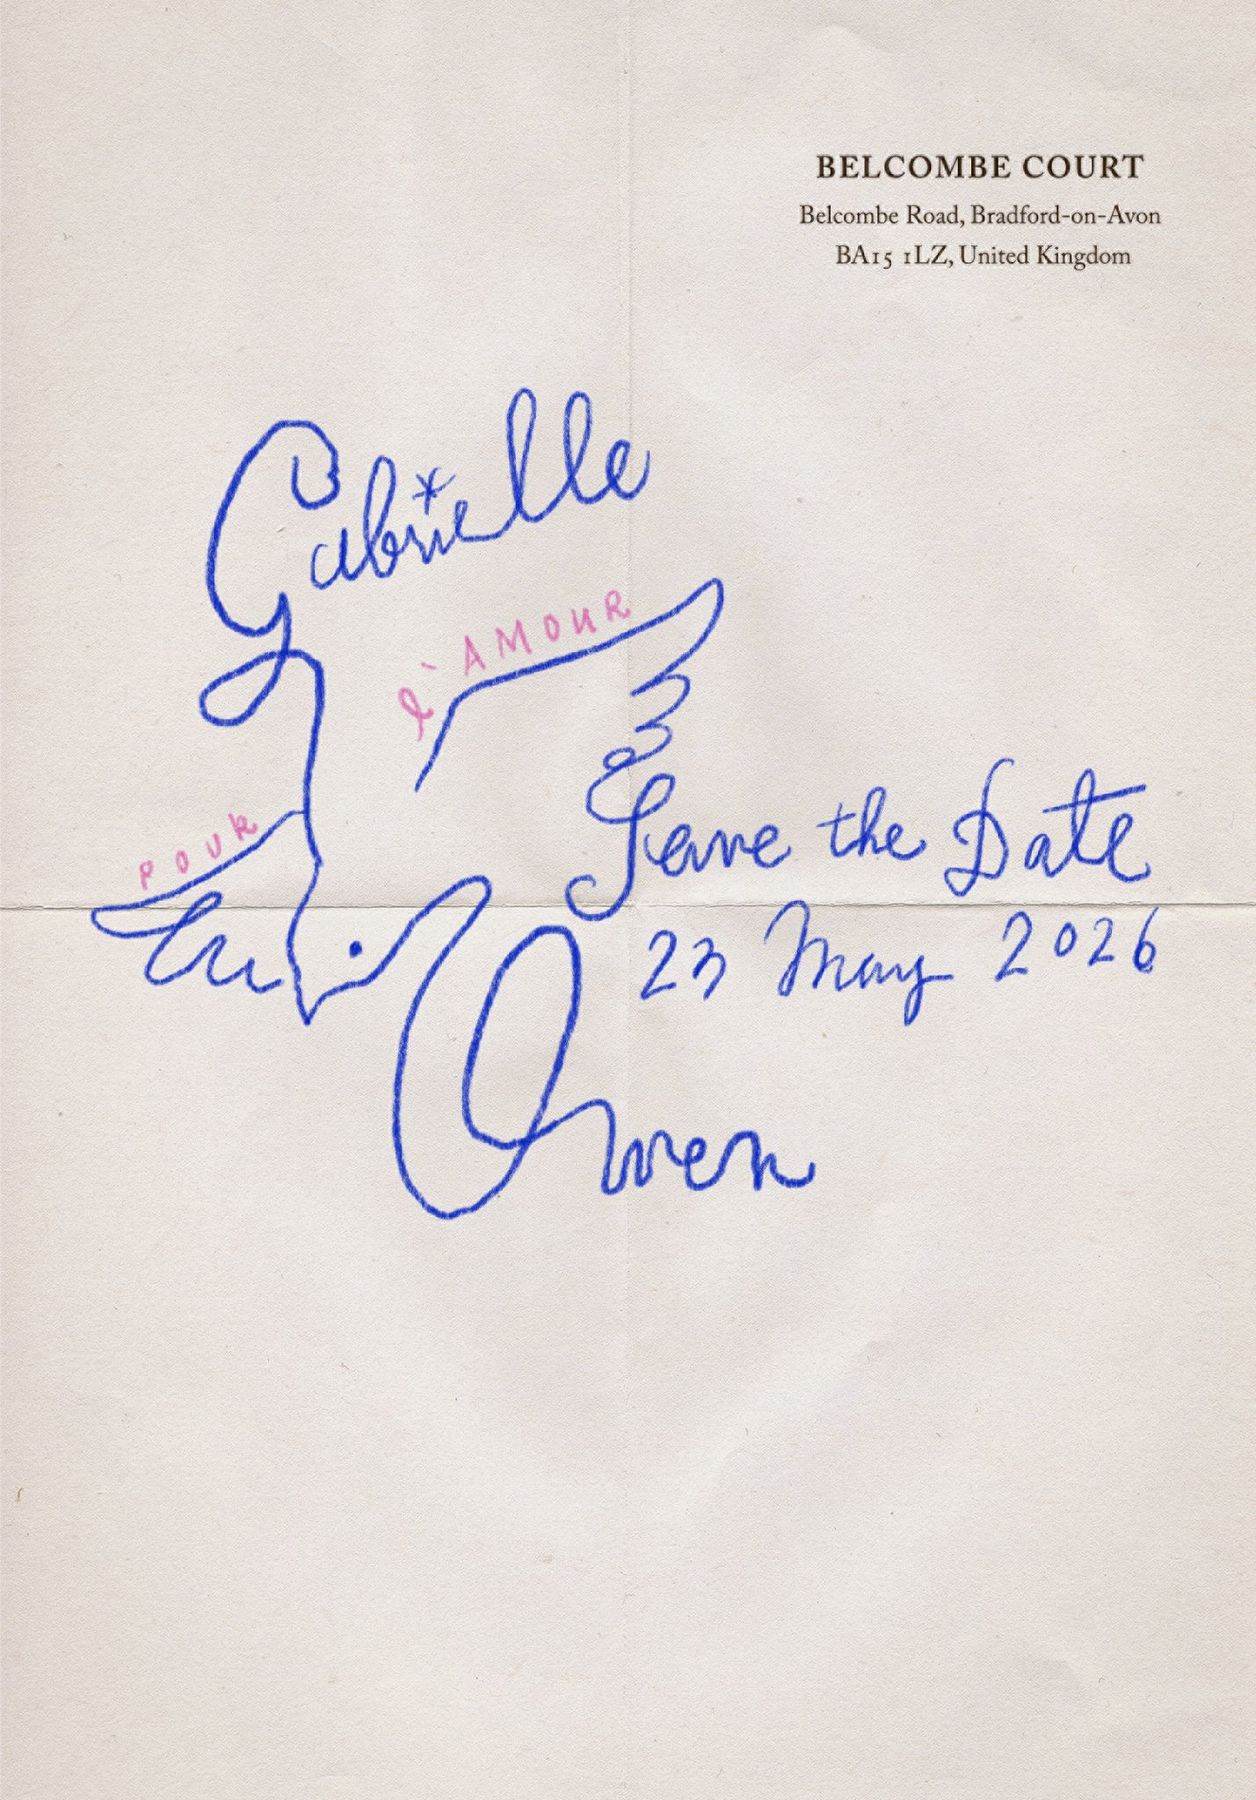 BELCOMBE COURT
Belcombe Road, Bradford-on-Avon
BA15 1LZ, United Kingdom
Gabrielle
POUR
l'AMOUR
Save the Date
23 May 2026
Owen